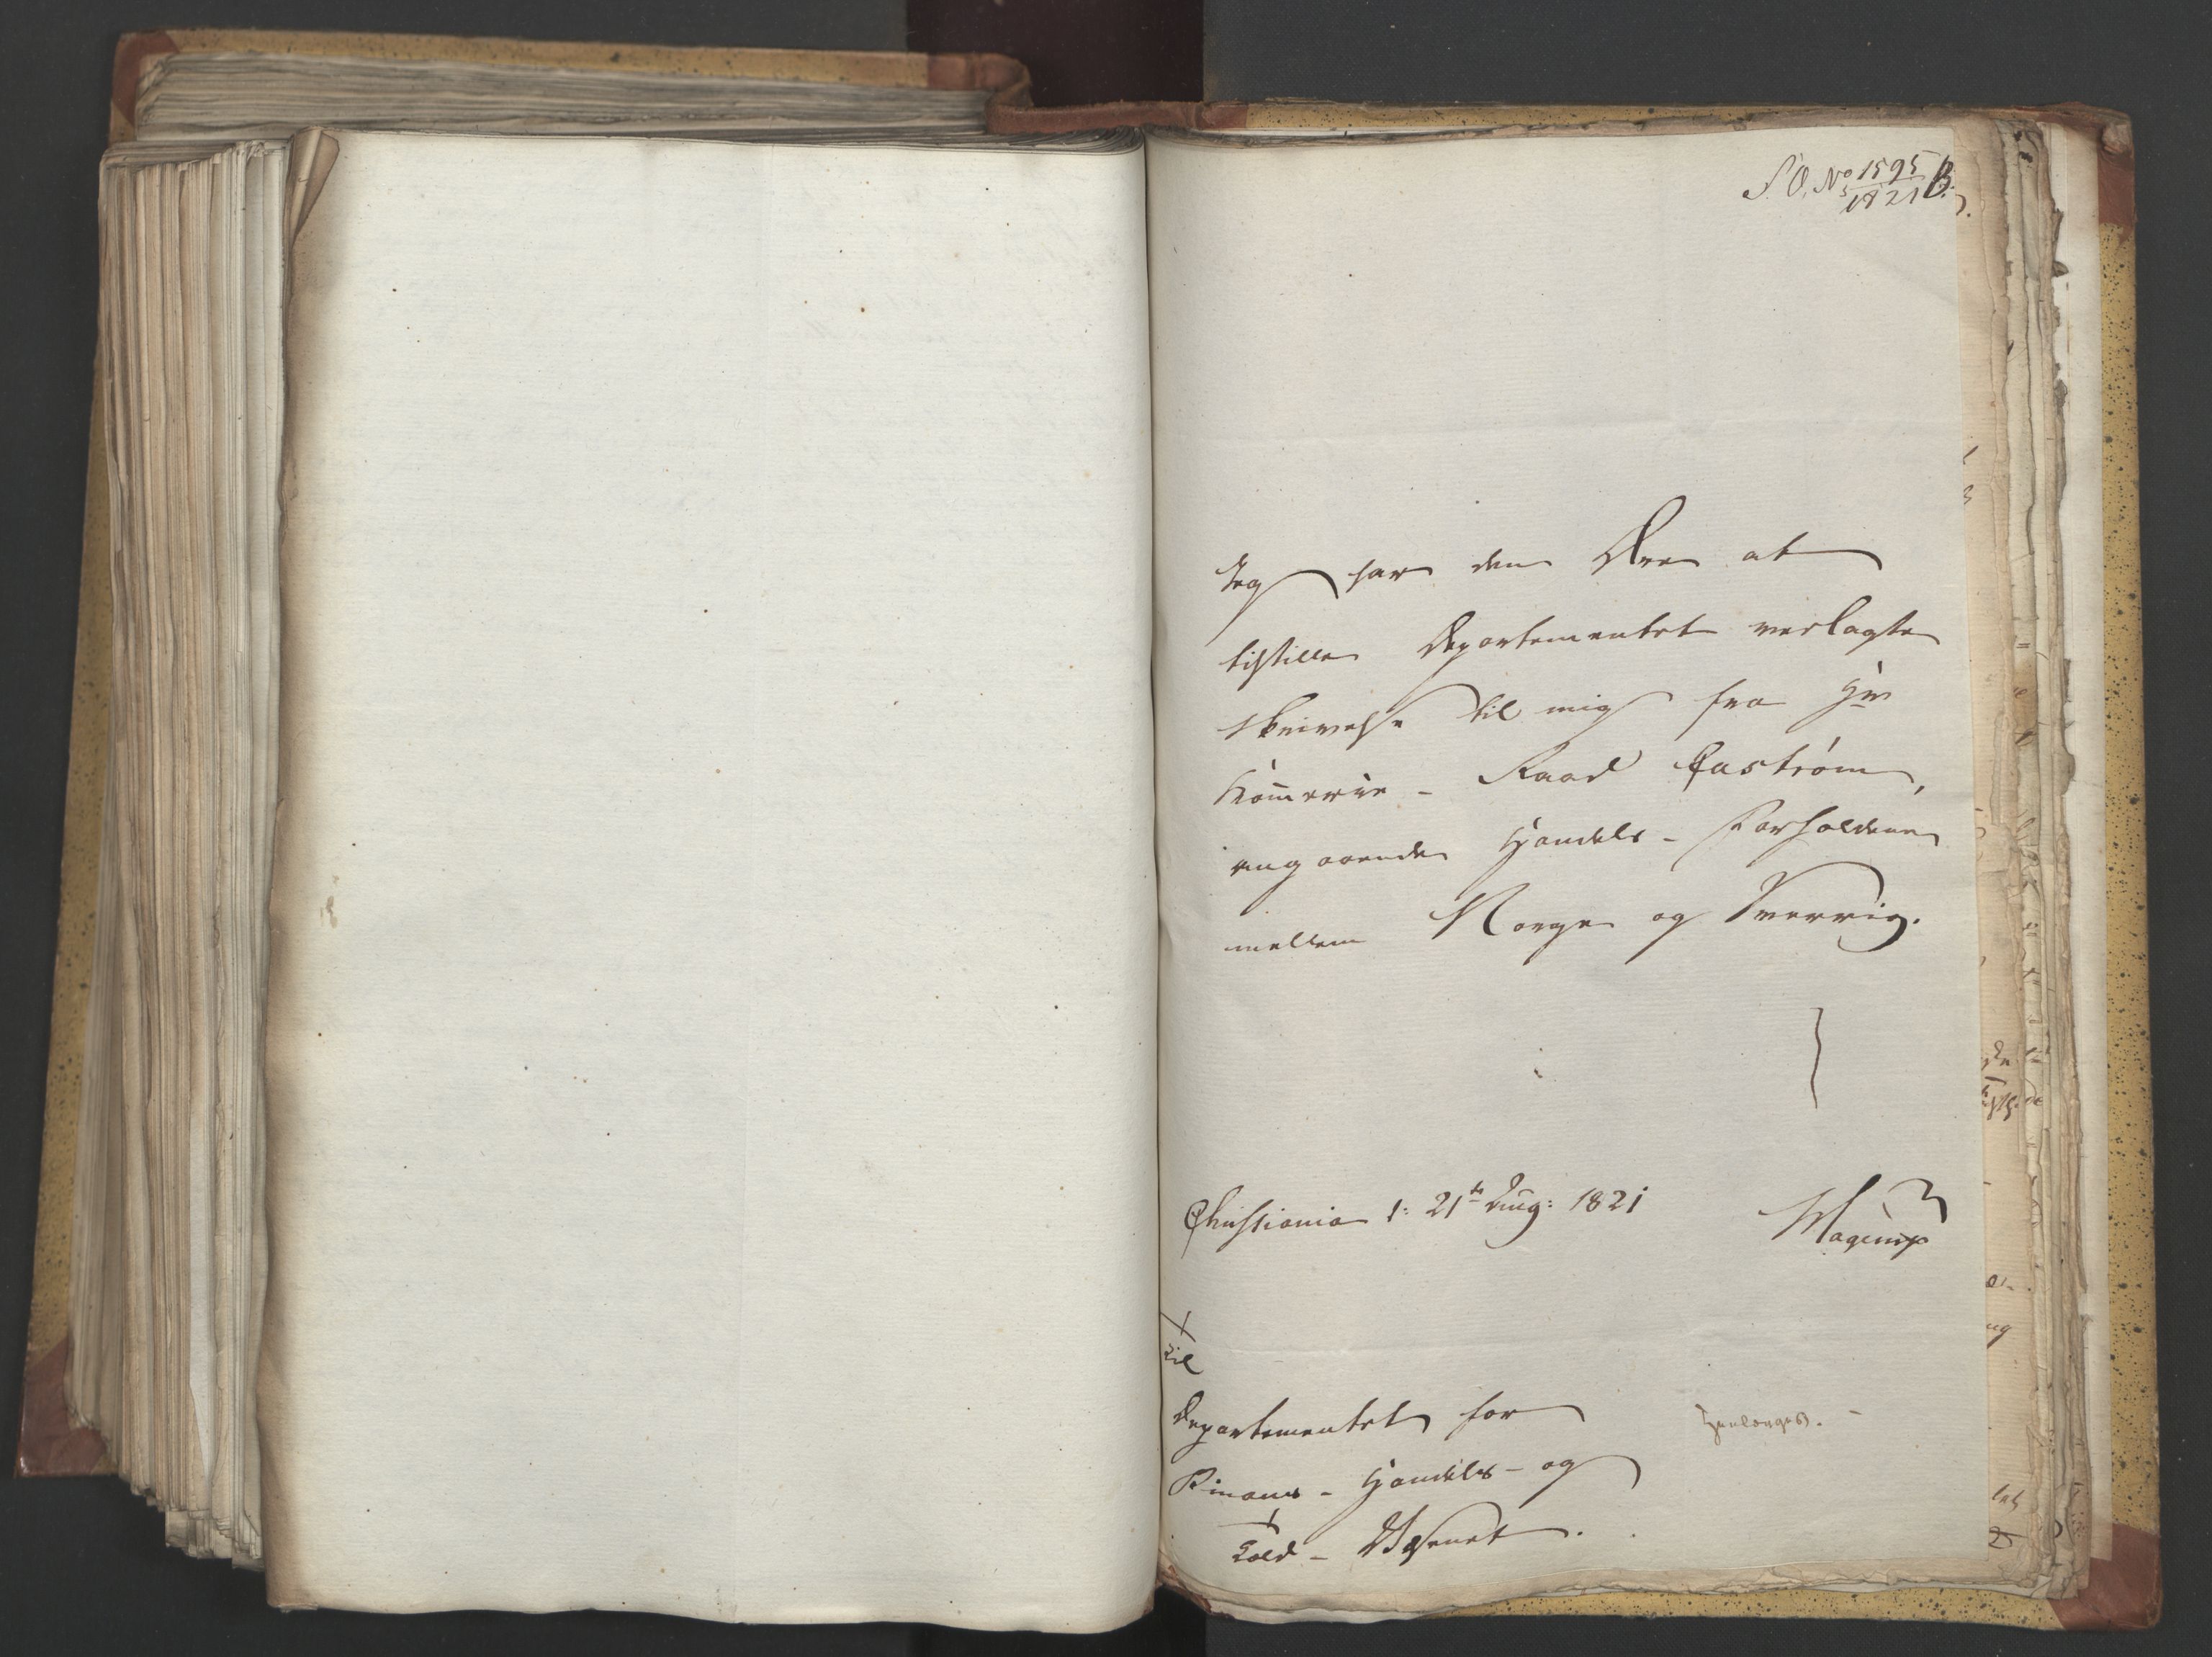 S. O. No 1595 B.
1821
Jeg har den Ære at
tilstille Departementet verlagte
Skrivelse til mig fra Hr
Kom̄erce-Raad Eastrøm,
angaaende Handels-Forholdene
mellem Norge og Sverrig.
Christiania d: 21de Aug: 1821
Til
Departementet for
Finans- Handels- og
Told-Væsenet.
Henlægges. -